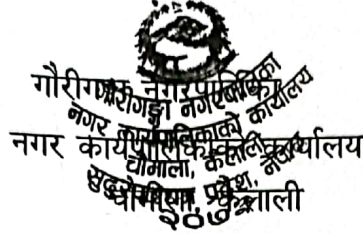 गौरीगङ्गा नगरपालिका
नगर कार्यपालिकाको कार्यालय
चौमाला, कैलाली
गौरीगङ्गा नगरपालिका
नगर कार्यपालिकाको कार्यालय
चौमाला, कैलाली
सुदूरपश्चिम प्रदेश, नेपाल